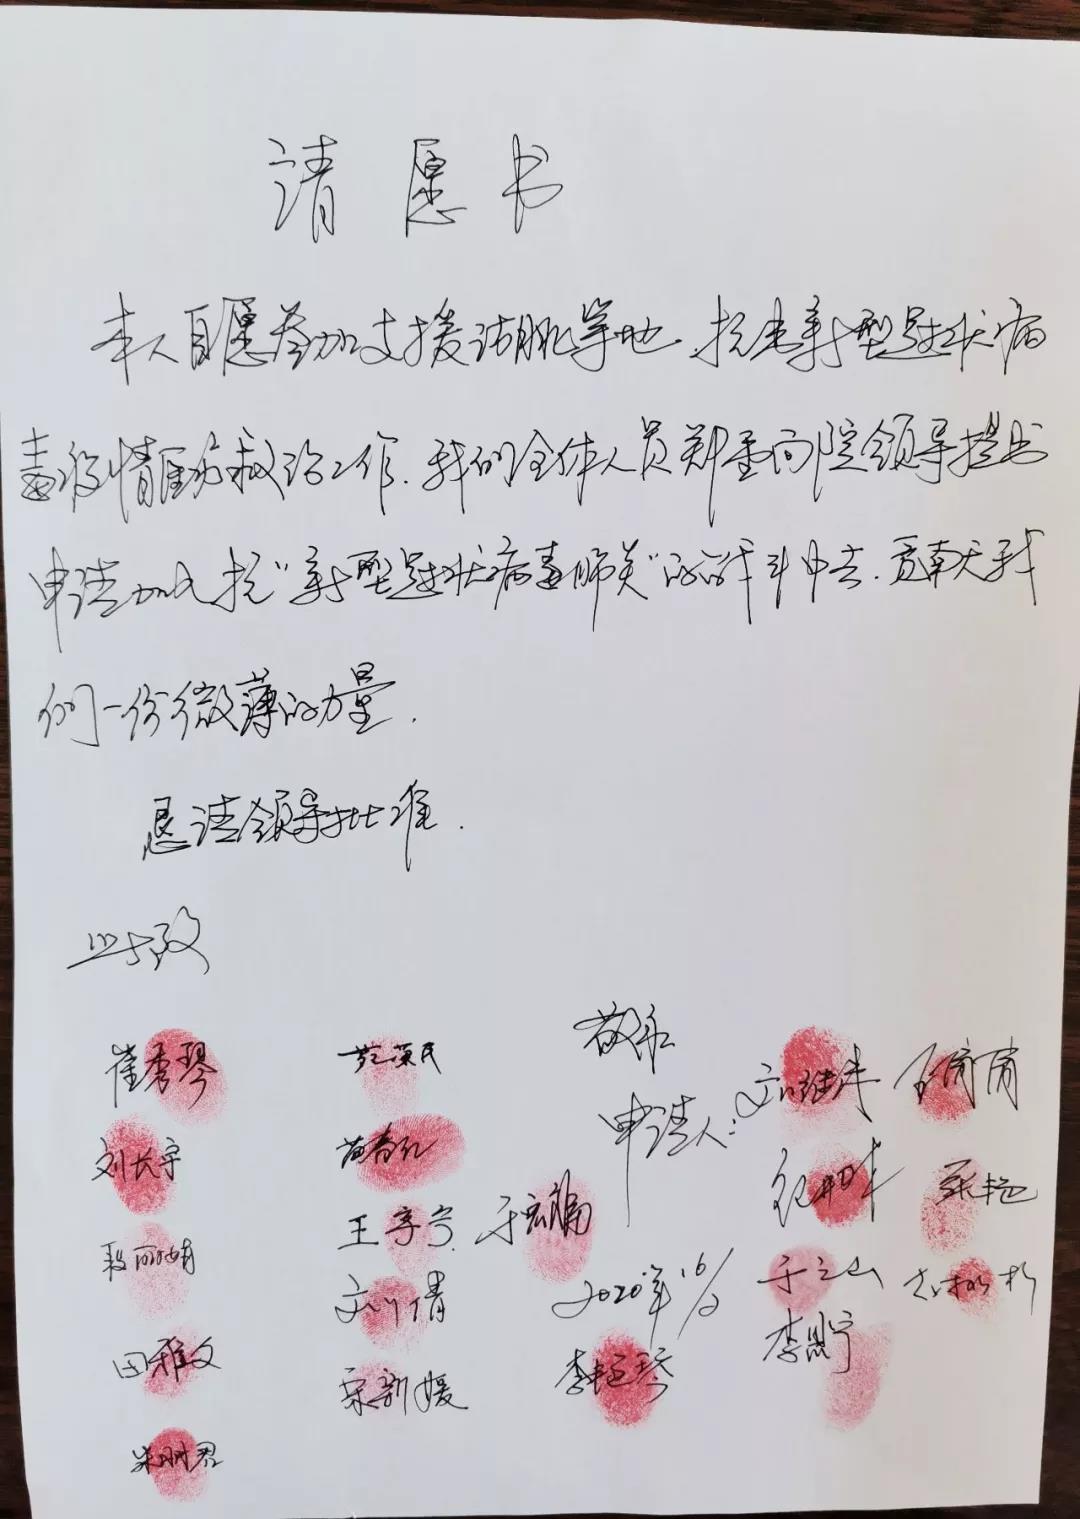 请愿书
本人自愿参加支援湖北等地、抗击新型冠状病
毒疫情医疗救治工作.我们全体人员郑重向院领导提出
申请加入抗"新型冠状病毒肺炎"的战斗中去.贡献我
们一份微薄的力量.
恳请领导批准.
此致
敬礼
申请人:
刘继泽
崔秀琴
刘长宇
田雅文
苗春红
王亭宁
于宏娟
刘倩
宋新媛
于之山
李思宁
李艳琴
2020年